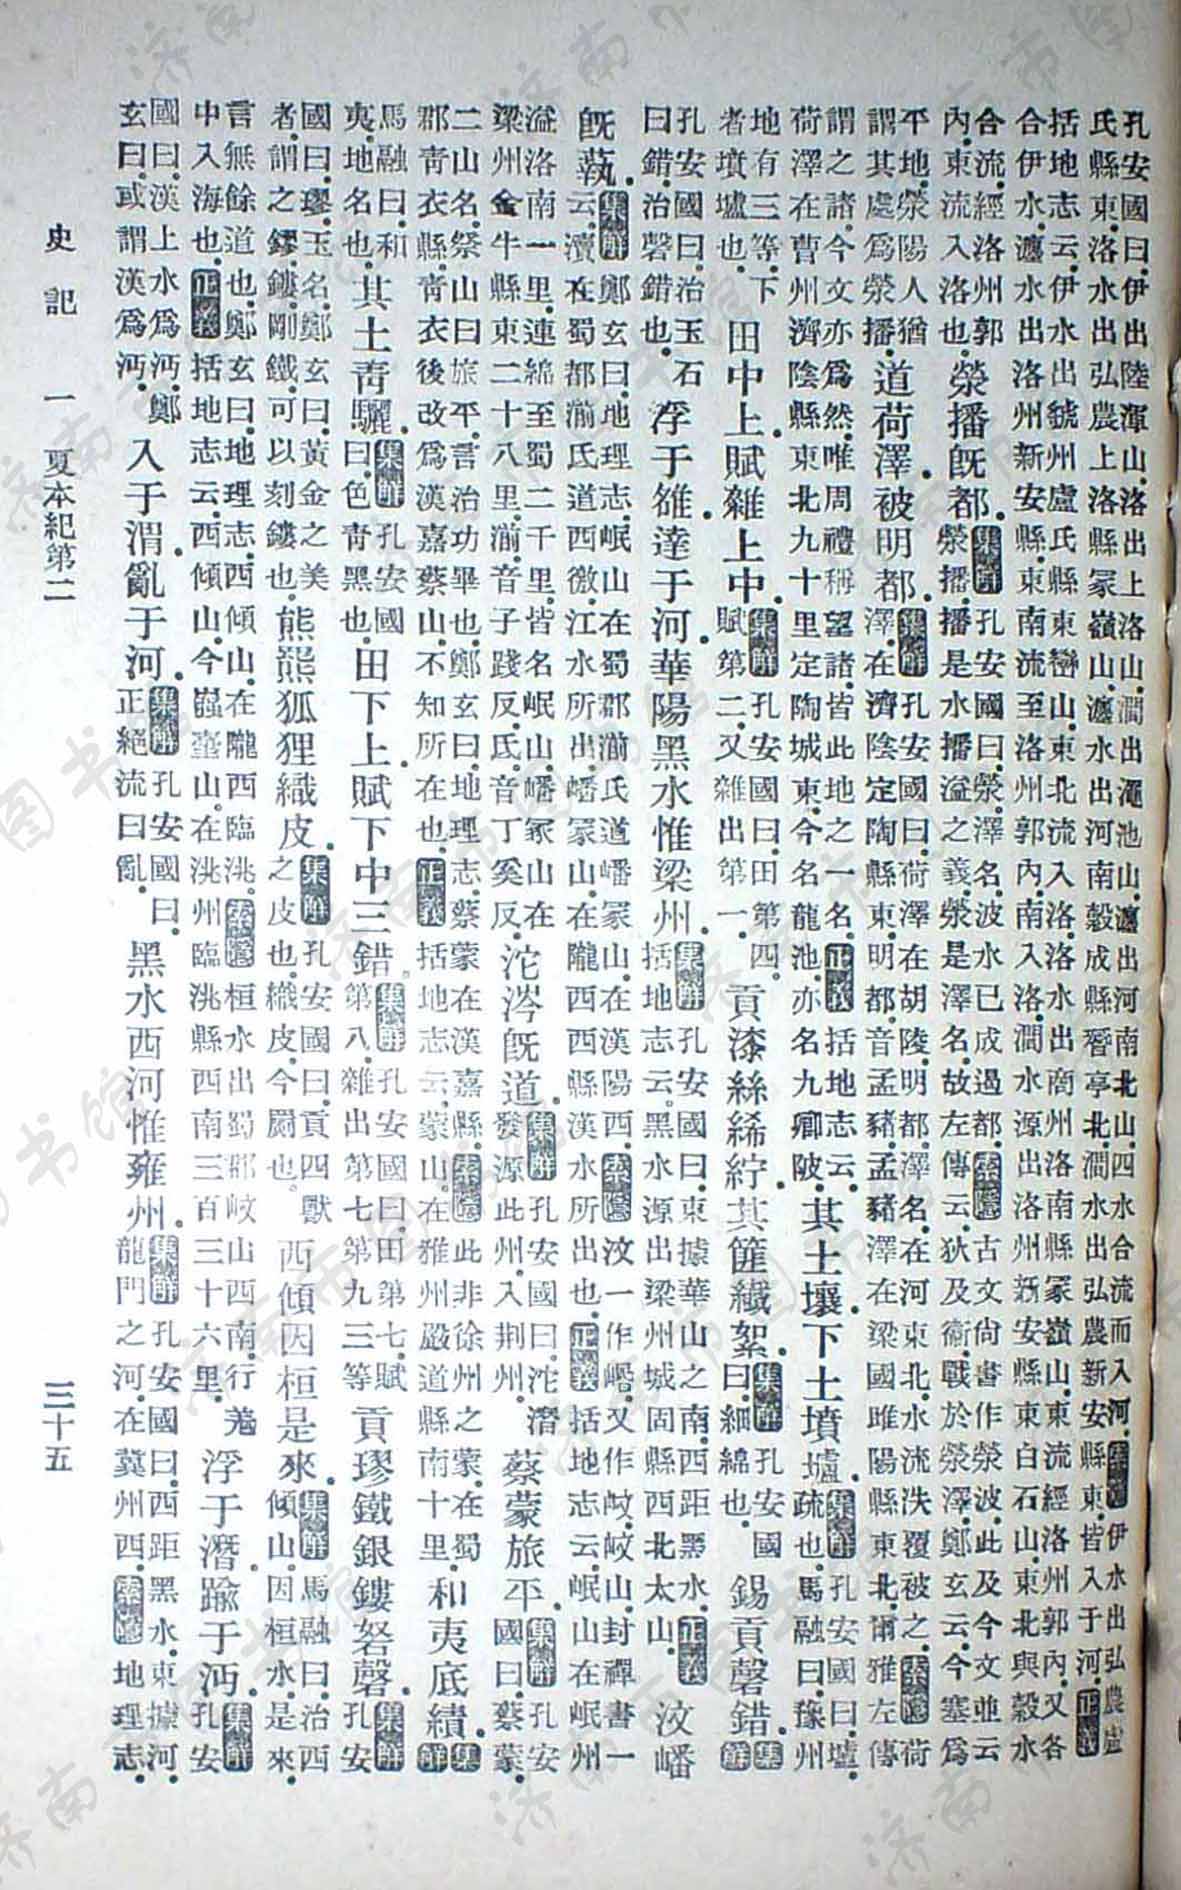 孔安國曰.伊出陸渾山.洛出上洛山.澗出澠池山.瀍出河南北山.四水合流而入河.索隱伊水出弘農盧
氏縣東.洛水出弘農上洛縣冢嶺山.瀍水出河南穀成縣朁亭北.澗水出弘農新安縣東.皆入于河.正義
括地志云.伊水出虢州盧氏縣東巒山.東北流入洛.洛水出商州洛南縣冢嶺山.東流經洛州郭內.又各
合伊水.瀍水出洛州新安縣東.南流至洛州郭內.南入洛.澗水源出洛州新安縣東白石山.東北與穀水
合流.經洛州郭內.東流入洛也.滎播既都.集解孔安國曰.滎澤名.波水已成遏都.索隱古文尙書作滎波.此及今文並云滎播.播是水播溢之義.滎是澤名.故左傳云.狄及衞戰於滎澤.鄭玄云.今塞爲
平地.滎陽人猶謂其處爲滎播.道荷澤.被明都.集解孔安國曰.荷澤在胡陵.明都澤名.在河東北.水流泆覆被之.索隱荷澤.在濟陰定陶縣東.明都音孟豬.孟豬澤在梁國睢陽縣東北.爾雅左傳
謂之諸.今文亦爲然.唯周禮稱望諸.皆此地之一名.正義括地志云.荷澤在曹州濟陰縣東北九十里定陶城東.今名龍池.亦名九卿陂.其土壤.下土墳壚.集解孔安國曰.壚.疏也.馬融曰.豫州
地有三等.下者墳壚也.田中上.賦雜上中.集解孔安國曰.田第四.賦第二.又雜出第一.貢漆絲絺紵.其篚纖絮.集解孔安國曰.細綿也.錫貢磬錯.集解
孔安國曰.治玉石曰錯.治磬錯也.浮于雒.達于河.華陽黑水惟梁州.集解孔安國曰.東據華山之南.西距黑水.正義括地志云.黑水源出梁州城固縣西北太山.汶嶓
既蓺.集解鄭玄曰.地理志.岷山在蜀郡湔氐道.嶓冢山.在漢陽西.索隱汶一作㟭.又作岐.岐山.封禪書一云.瀆在蜀都湔氐道西徼.江水所出.嶓冢山.在隴西西縣.漢水所出也.正義括地志云.岷山在岷州
溢洛南一里.連綿至蜀二千里.皆名岷山.嶓冢山在梁州金牛縣東二十八里.湔.音子踐反.氐.音丁奚反.沱涔既道.集解孔安國曰.沱潛發源此州.入荆州.蔡蒙旅平.集解孔安國曰.蔡蒙
二山名.祭山曰旅.平.言治功畢也.鄭玄曰.地理志.蔡蒙在漢嘉縣.索隱此非徐州之蒙.在蜀郡靑衣縣.靑衣後改爲漢嘉.蔡山.不知所在也.正義括地志云.蒙山.在雅州嚴道縣南十里.和夷底績.集解
馬融曰.和夷.地名也.其土靑驪.集解孔安國曰.色靑黑也.田下上.賦下中三錯.集解孔安國曰.田第七.賦第八.雜出第七第九三等貢璆鐵銀鏤砮磬.集解孔安
國曰.璆.玉名.鄭玄曰.黃金之美者.謂之鏐.鏤.剛鐵.可以刻鏤也.熊羆狐狸織皮.集解孔安國曰.貢四獸之皮也.織皮.今罽也.西傾因桓是來.集解馬融曰.治西傾山.因桓水.是來
言無餘道也.鄭玄曰.地理志.西傾山.在隴西臨洮.索隱桓水出蜀郡岐山西南行羌中入海也.正義括地志云.西傾山.今嵹臺山.在洮州臨洮縣西南三百三十六里.浮于潛.踰于沔.集解孔安
國曰.漢上水爲沔.鄭玄曰.或謂漢爲沔.入于渭.亂于河.集解孔安國曰.正絕流曰亂.黑水西河惟雍州.集解孔安國曰.西距黑水.東據河.龍門之河.在冀州西.索隱地理志.
史記　一　夏本紀第二　三十五